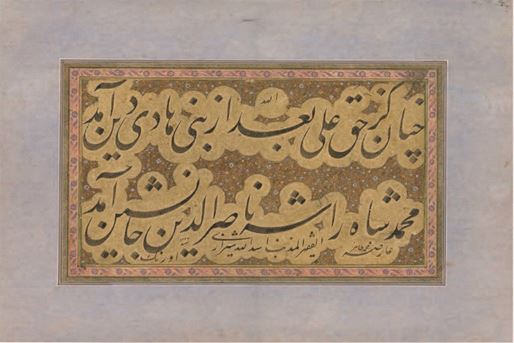 الله
چنان کز حق علی بعد از نبی هادی دین آمد
محمد شاه را شه ناصر الدین جانشین آمد
الفقیر المذنب اسد الله شیرازی